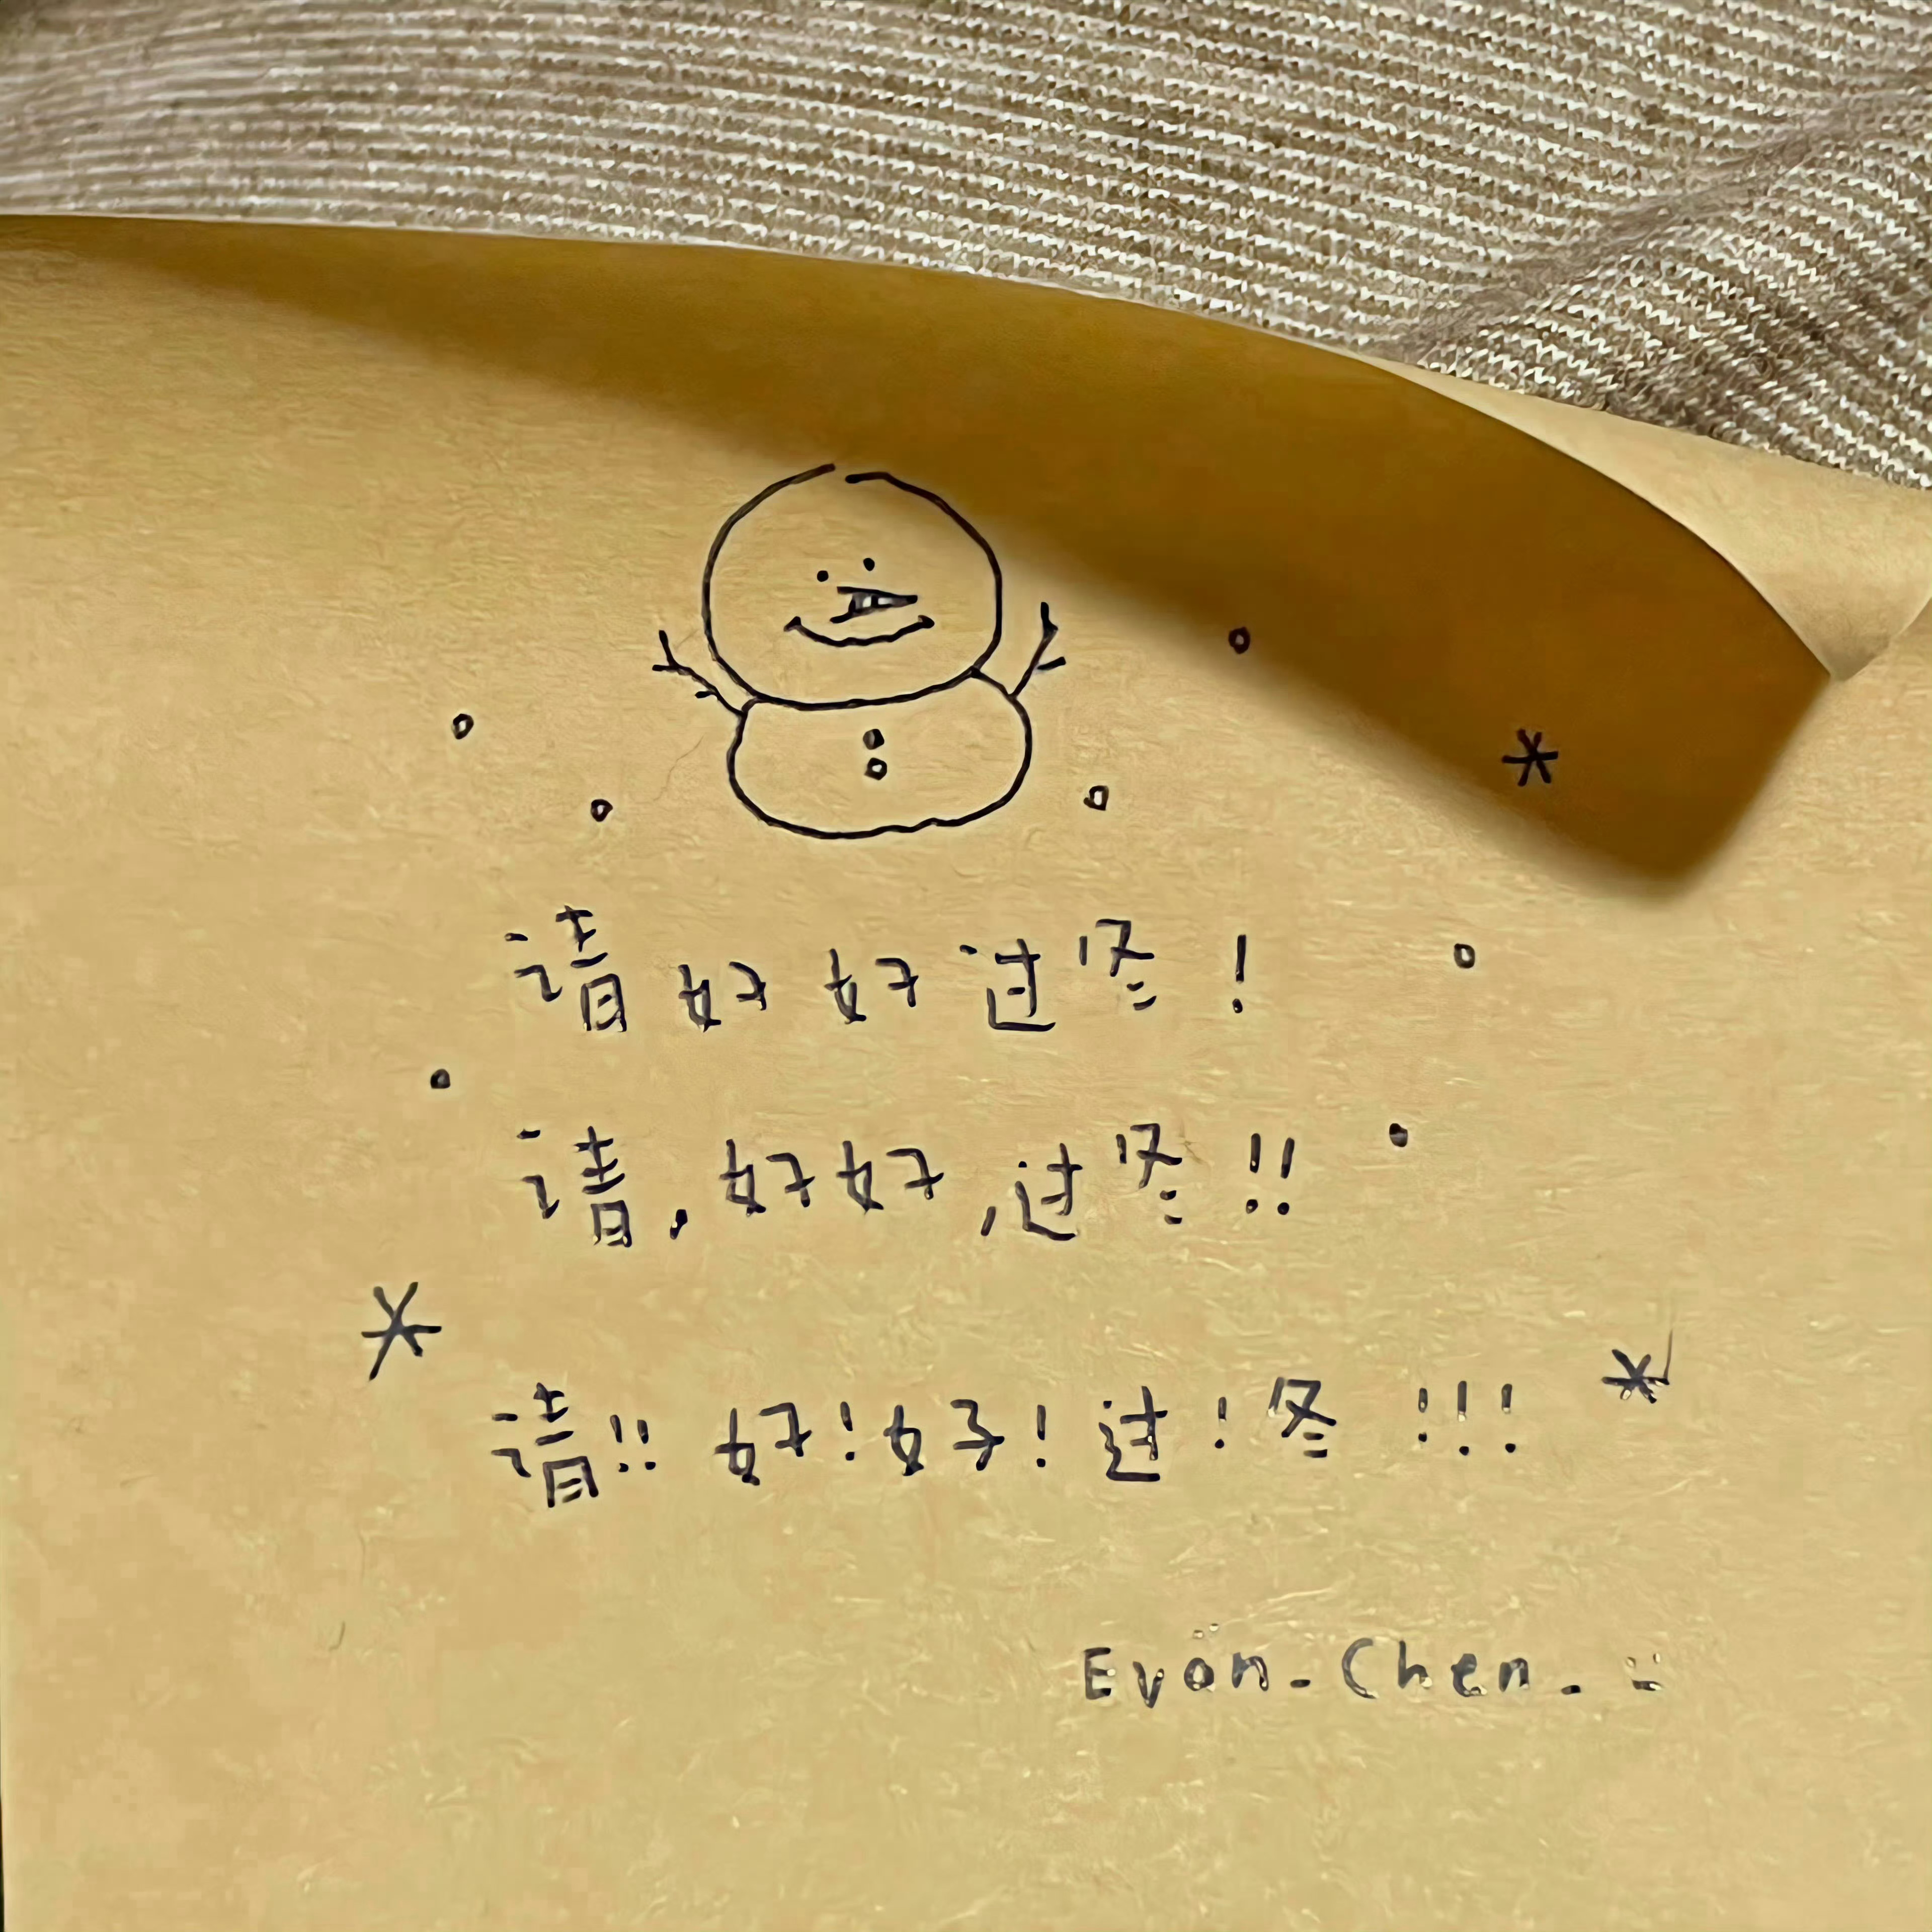 请好好过冬！
请，好好，过冬！！
请！！好！好！过！冬！！！
Evan-Chen.